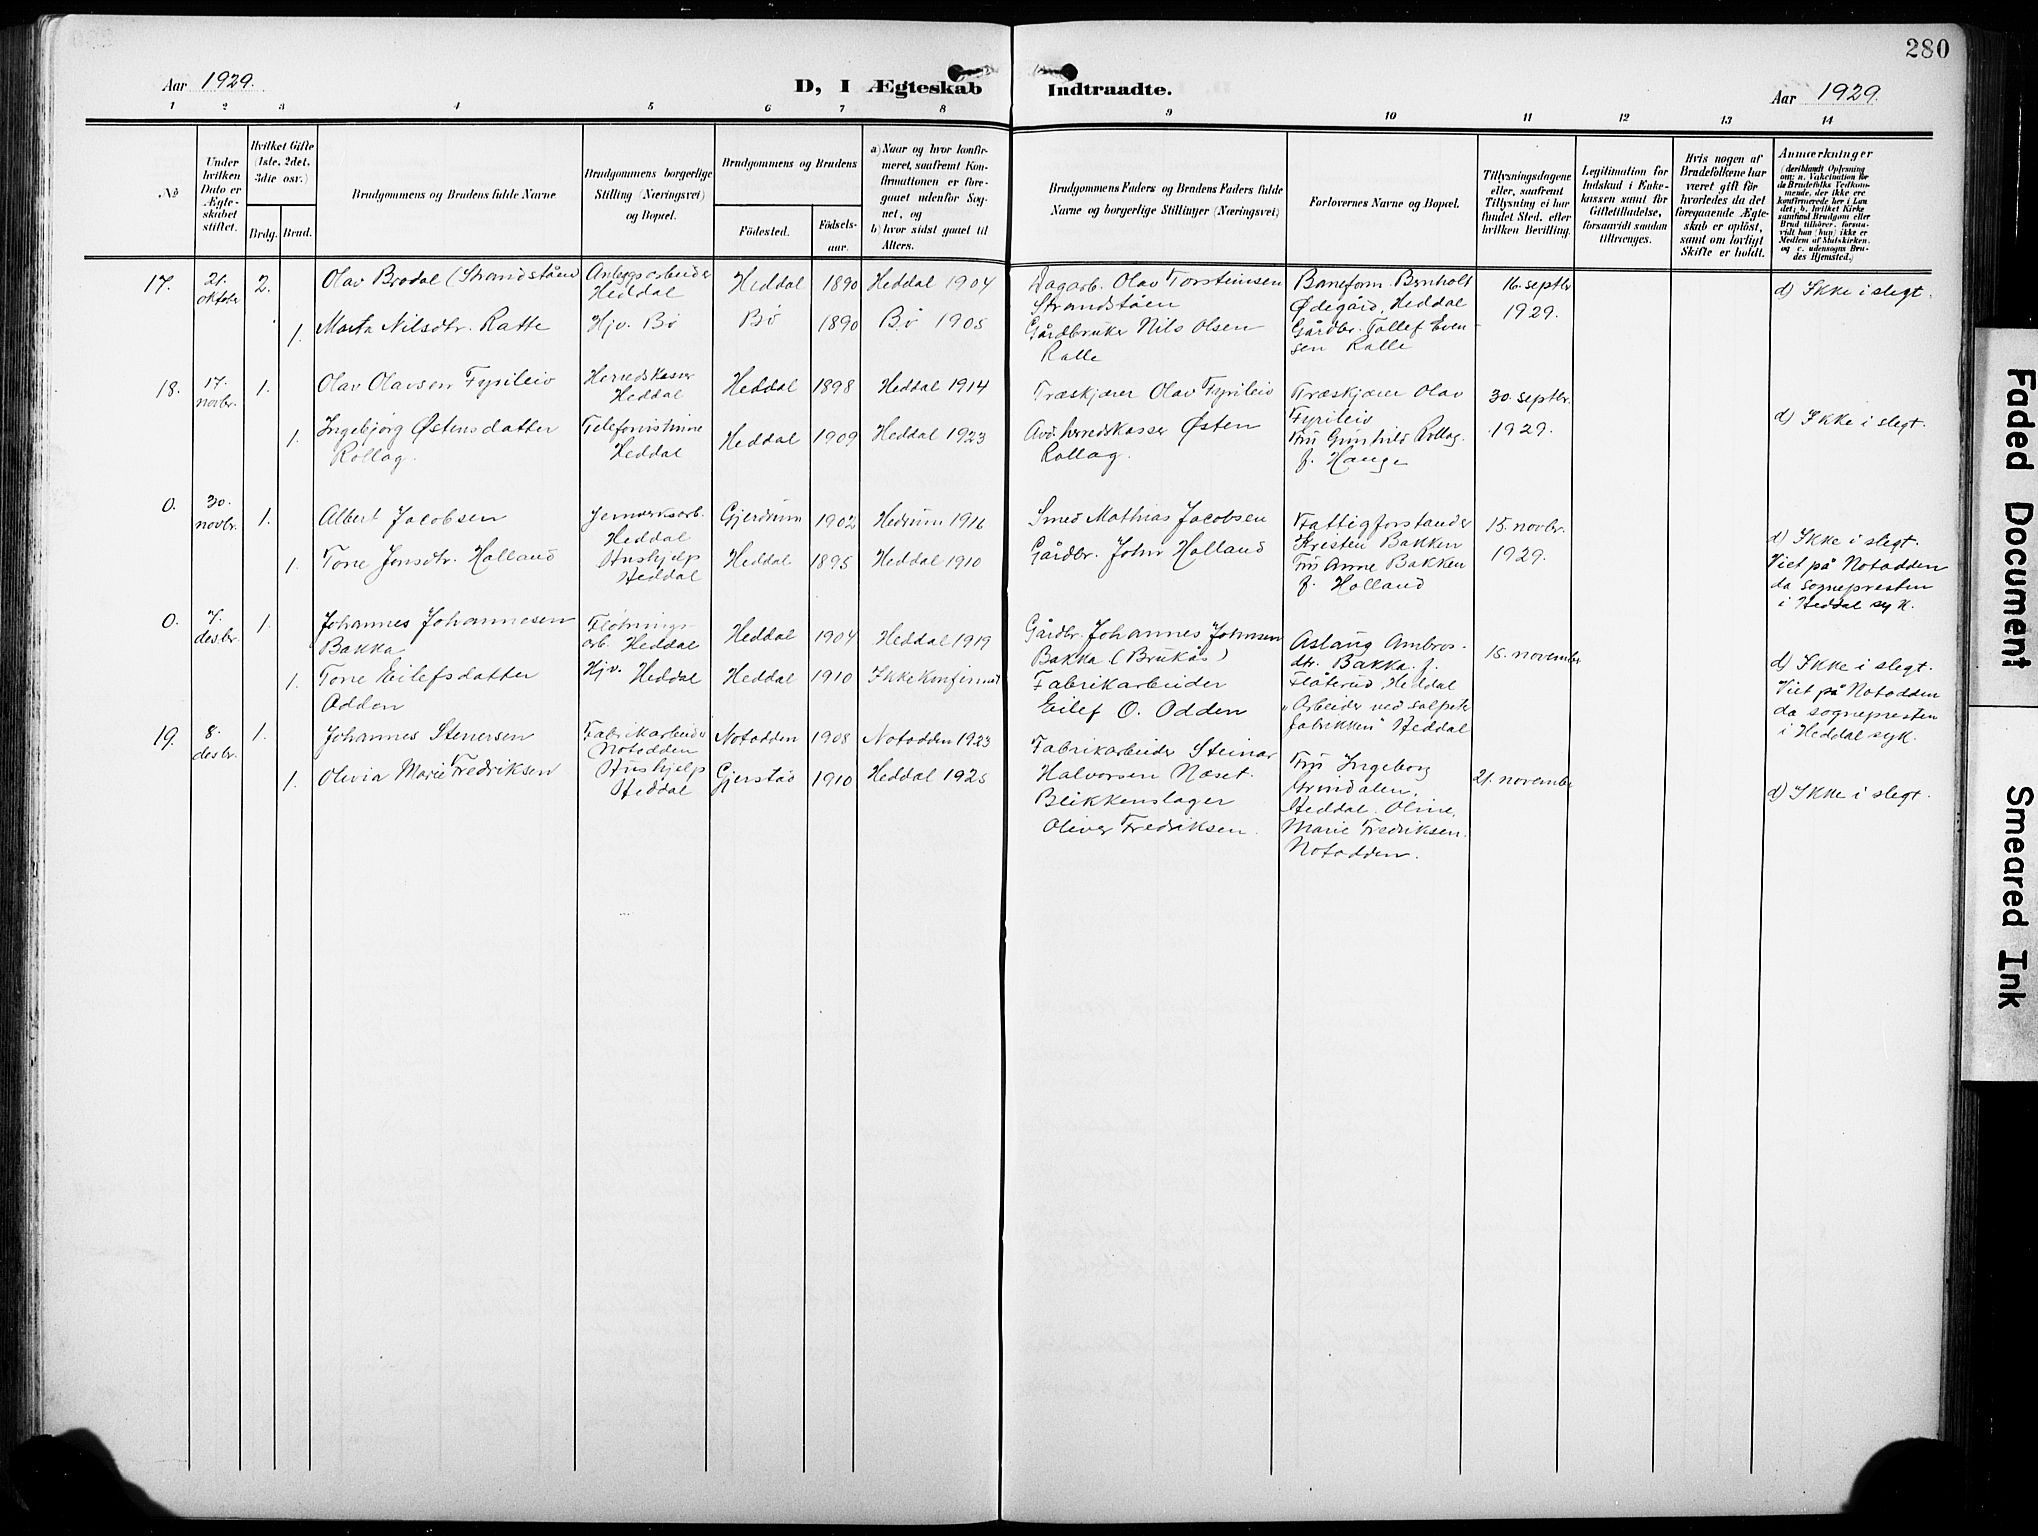 280
Aar 1929.
D, I Ægteskab Indtraadte.
Aar 1929.
1 2 3 4 5 6 7 8 9 10 11 12 13 14
No
Under hvilken Dato er Ægteskabet stiftet.
Hvilket Gifte (1ste, 2det, 3die osv.)
Brdg. Brud.
Brudgommens og Brudens fulde Navne
Brudgommens borgerlige Stilling (Næringsvei) og Bopæl.
Brudgommens og Brudens
Fødested. Fødselsaar.
a) Naar og hvor konfirmeret, saafremt Konfirmationen er foregaaet udenfor Sognet, og
b) hvor sidst gaaet til Alters.
Brudgommens Faders og Brudens Faders fulde Navne og borgerlige Stillinger (Næringsvei)
Forlovernes Navne og Bopæl.
Tillysningsdagene eller, saafremt Tillysning ei har fundet Sted, efter hvilken Bevilling.
Legitimation for Indskud i Enkekassen samt for Giftetilladelse, forsaavidt saadan tiltrænges.
Hvis nogen af Brudefolkene har været gift før hvorledes da det foregaaende Ægteskab er opløst, samt om lovligt Skifte er holdt.
Anmærkninger
(deriblandt Oplysning om: a. Vakcination for de Brudefolks Vedkommende, der ikke ere konfirmerede her i Landet; b. hvilket Kirkesamfund Brudgom eller Brud tilhører, forsaavidt han (hun) ikke er Medlem af Statskirken, og c. udensogns Brudes Hjemsted.)
17. 21. oktobr 2. Olav Brodal (Strandståen) Anlegsarbeider Heddal Heddal 1890 Heddal 1904 Dagarb. Olav Torsteinsen Strandstøen Baneform. Bernholt Ødegård, Heddal 16. septbr 1929. d) Ikke i slegt.
1. Marta Nilsdtr. Ratte Hjv. Bø Bø 1890 Bø 1905 Gårdbruker Nils Olsen Ralle Gårdbr. Tollef Evensen Ralle
18. 17. novbr. 1. Olav Olavsen Fyrileiv Herredskasser Heddal Heddal 1898 Heddal 1914 Træskjærer Olav Fyrileiv Træskjærer Olav Fyrileiv 30. septbr. 1929. d) Ikke i slegt.
1. Ingebjørg Østensdatter Rollag. Telefonistinne Heddal Heddal 1909 Heddal 1923 Avd. herredskasser Østen Rollag. Fru Gunhild Rollag. f. Hauge
0. 30. novbr. 1. Albert Jacobsen Jernverksarb. Heddal Gjerdrum 1902 Hedrum 1916 Smed Mathias Jacobsen Fattigforstander Kristen Bakken 15. novbr. 1929. d) Ikke i slegt. Viet på Notodden da sognepresten i Heddal syk.
1. Tone Jonsdtr. Holland Hushjelp Heddal Heddal 1895 Heddal 1910 Gårdbr. John Holland Fru Anne Bakken f. Holland
0. 7. desbr. 1. Johannes Johannesen Bakka Fløtningsarb. Heddal Heddal 1904 Heddal 1919 Gårdbr. Johannes Johnsen Bakka (Brukås) Aslaug Ambrosdtr. Bakka f. Flåterud, Heddal 15. november d) Ikke i slegt. Viet på Notodden da sognepresten i Heddal syk.
1. Tone Eilefsdatter Odden Hjv. Heddal Heddal 1910 Ikke konfirmert Fabrikarbeider Eilef O. Odden "Arbeider ved salpeterfabrikken" Heddal
19. 8. desbr. 1. Johannes Stenersen Fabrikarbeider Notodden Notodden 1908 Notodden 1923 Fabrikarbeider Steinar Halvorsen Næset. Fru Ingeborg Grindalen, Heddal. 21. november d) Ikke i slegt.
1. Olivia Marie Fredriksen Hushjelp Heddal Gjerstad 1910 Heddal 1925 Blikkenslager Oliver Fredriksen. Oline Marie Fredriksen. Notodden.
Faded Document
Smeared Ink